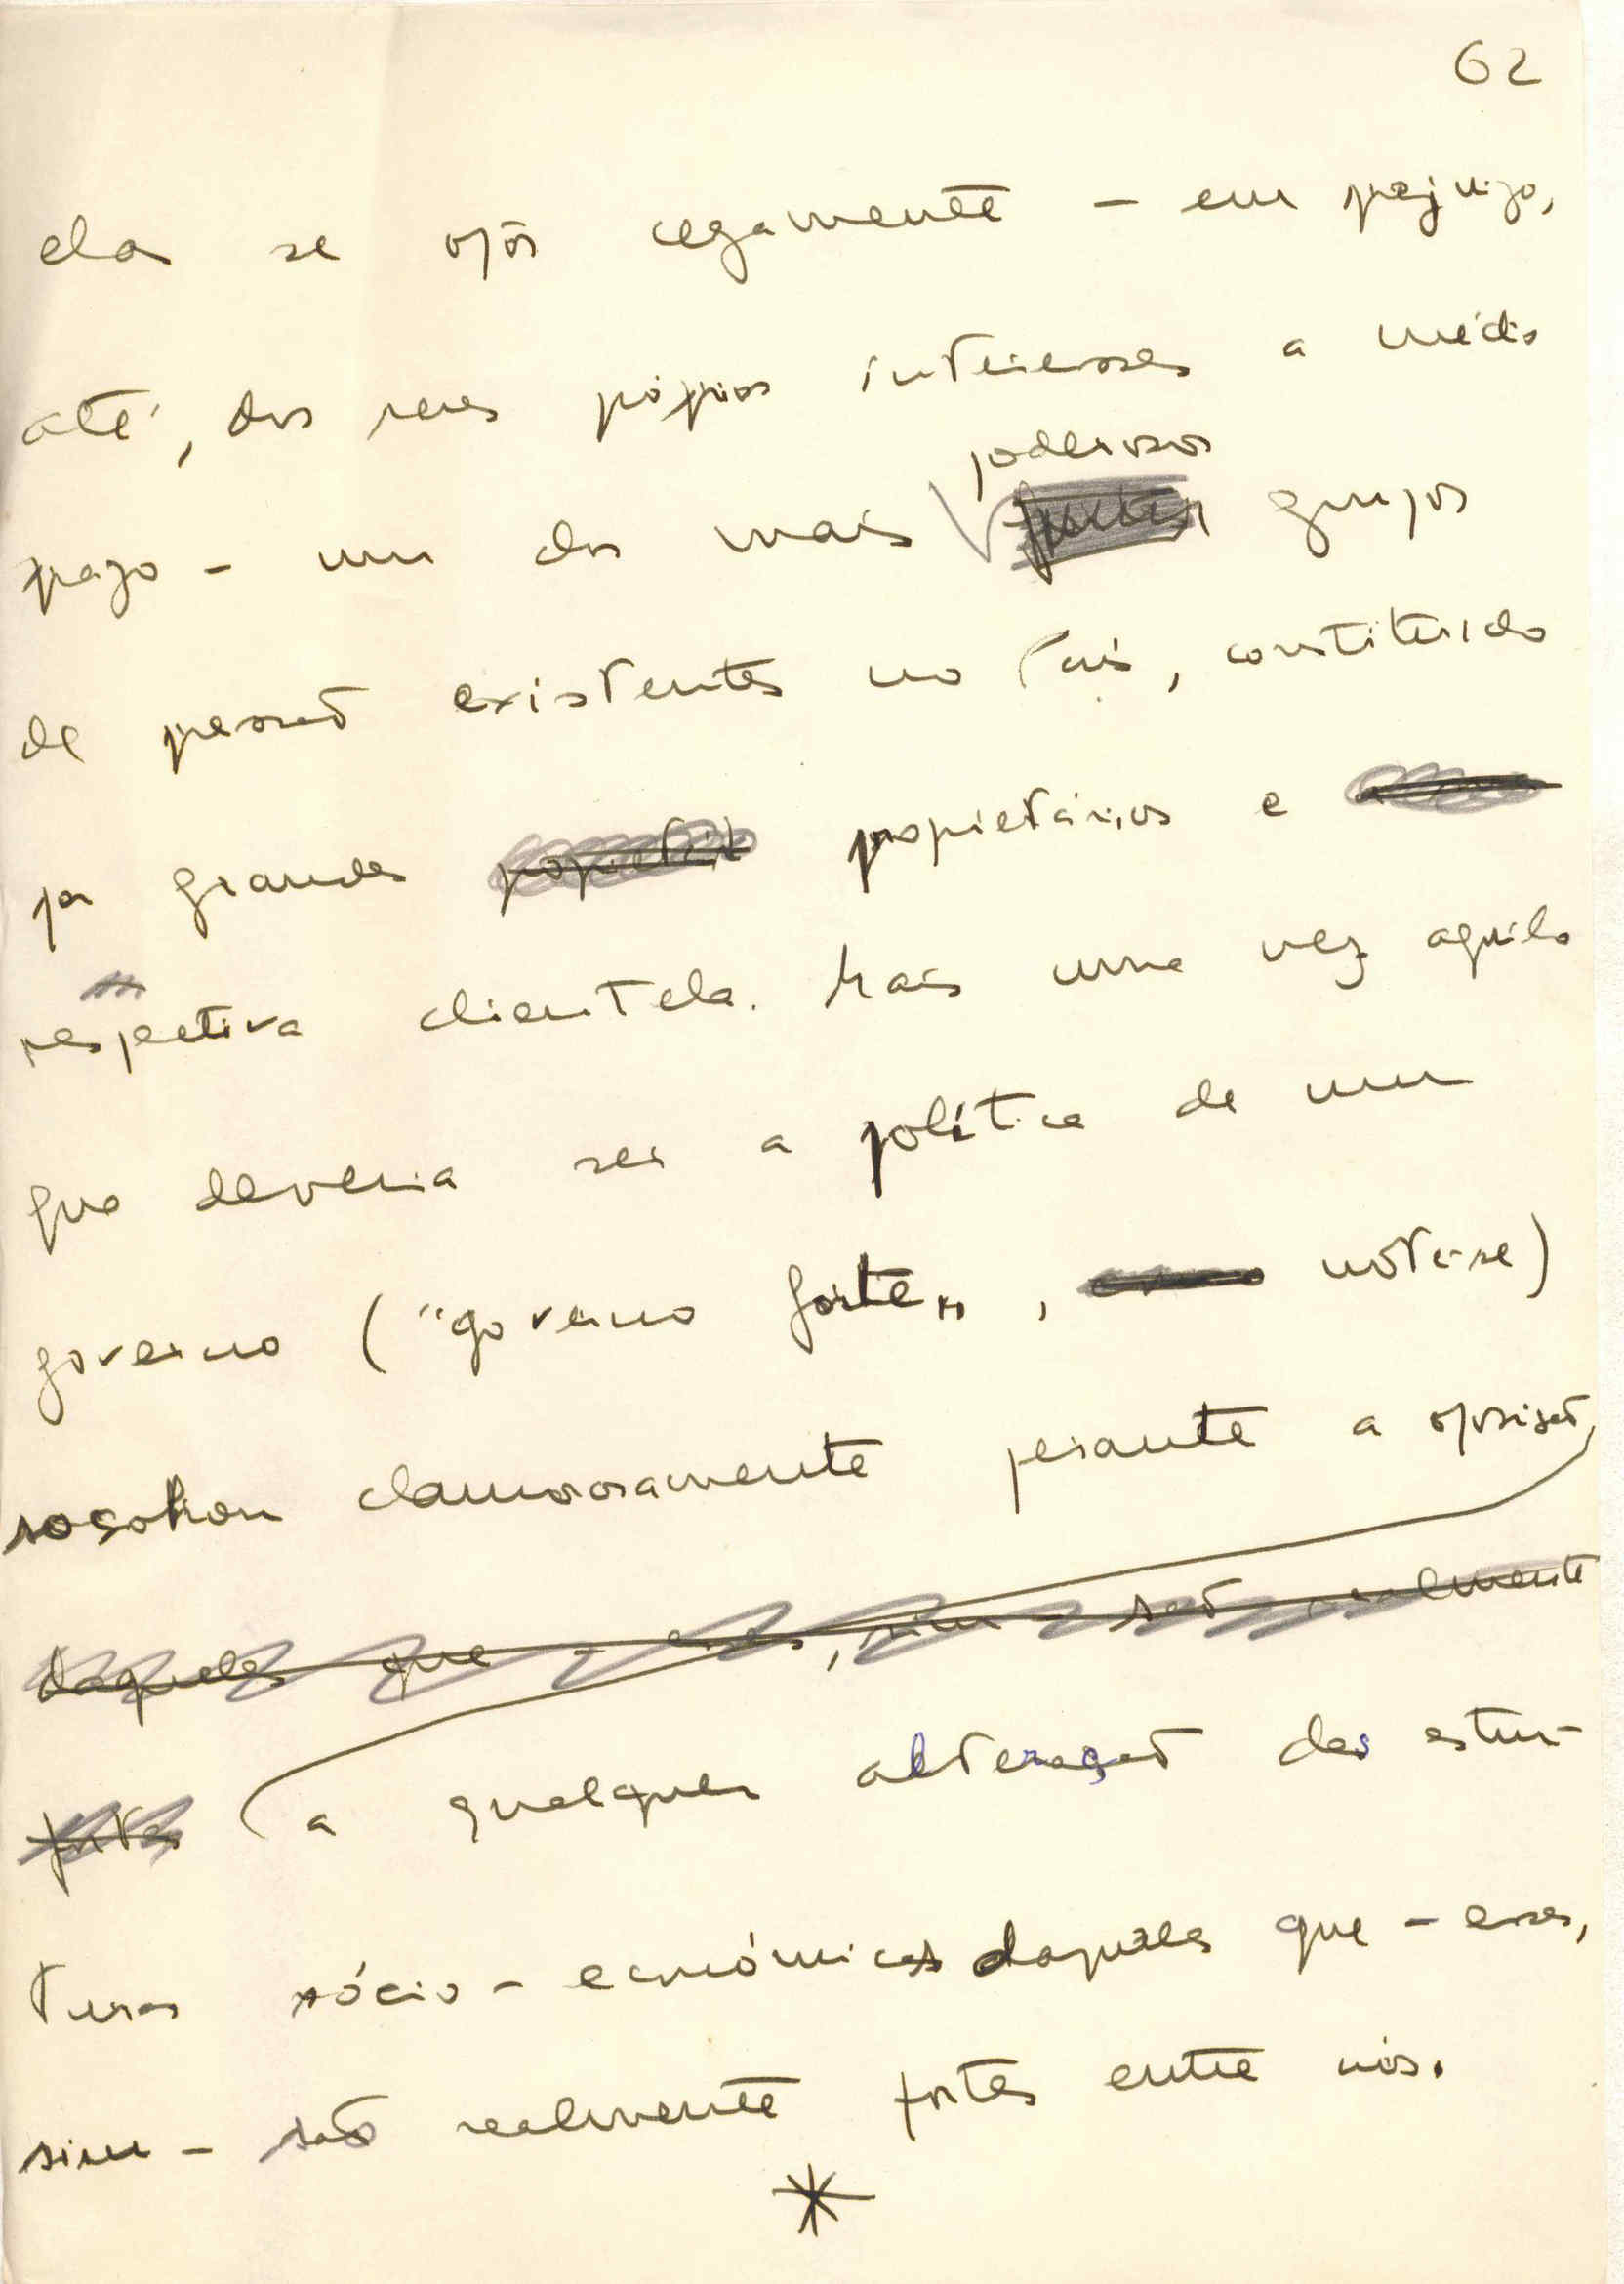 62
ela se opôs cegamente - em prejuízo,
até, dos seus próprios interesses a médio
poderosos
prazo - um dos mais fortes grupos
de pressão existentes no País, constituído
por grandes propietár proprietários e
respectiva clientela. Mais uma vez aquilo
que deveria ser a política de um
governo ("governo forte", note-se)
soçobrou clamorosamente perante a oposição,
daqueles que - esses, sim - são realmente
fortes a qualquer alteração das estru-
turas sócio-económicas daqueles que - esses,
sim - são realmente fortes entre nós.
*